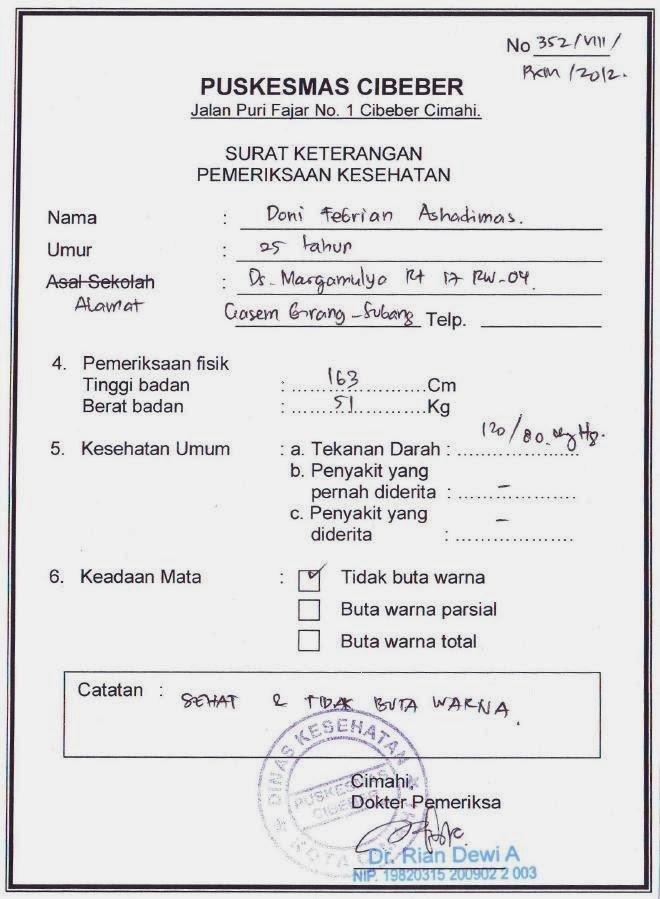 No 352/VIII/
PKM/2012.
PUSKESMAS CIBEBER
Jalan Puri Fajar No. 1 Cibeber Cimahi.
SURAT KETERANGAN
PEMERIKSAAN KESEHATAN
Nama : Doni Febrian Ashadimas.
Umur : 25 tahun
Asal Sekolah : Ds. Margamulyo Rt 17 RW-04.
Alamat Gasem Girang-Subang Telp.
4. Pemeriksaan fisik
Tinggi badan : 163 Cm
Berat badan : 51 Kg
5. Kesehatan Umum : a. Tekanan Darah : 120/80 mg Hg.
b. Penyakit yang
pernah diderita : -
c. Penyakit yang -
diderita :
6. Keadaan Mata : ✓ Tidak buta warna
Buta warna parsial
Buta warna total
Catatan : SEHAT & TIDAK BUTA WARNA.
DINAS KESEHATAN
PUSKESMAS
CIBEBER
KOTA
Cimahi,
Dokter Pemeriksa
Dr. Rian Dewi A
NIP. 19820315 200902 2 003